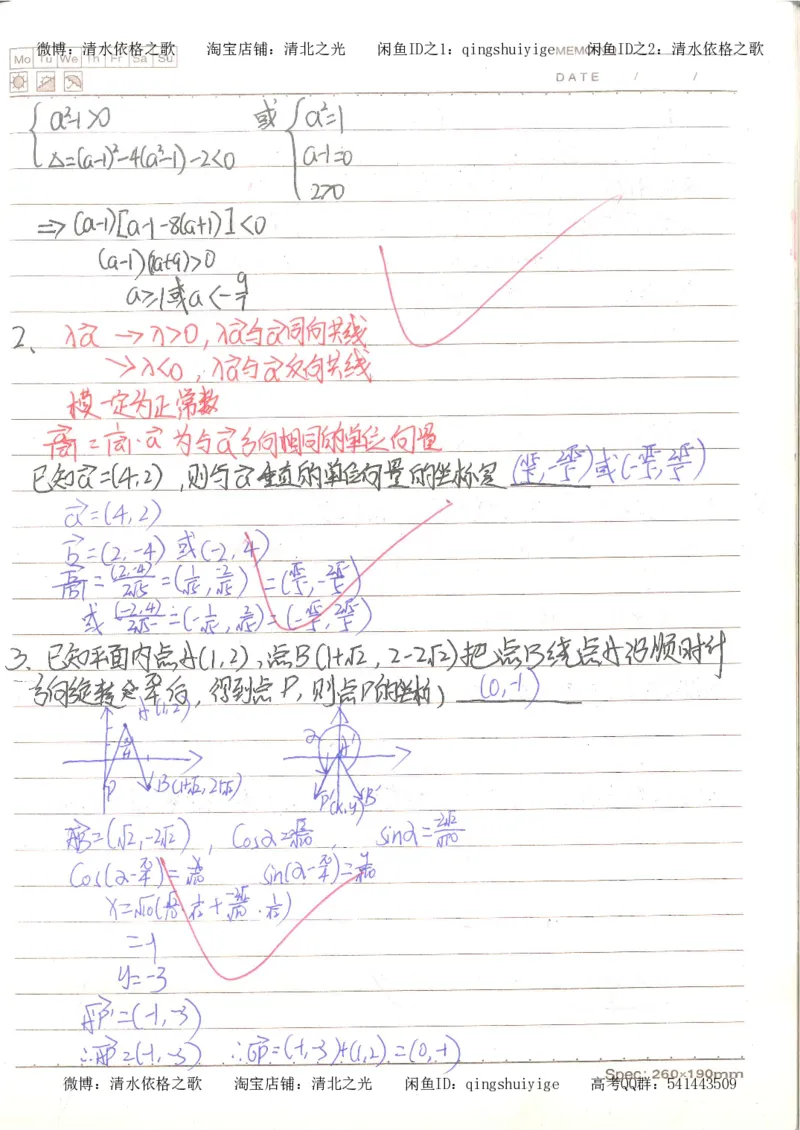 微博：清水依格之歌 淘宝店铺：清北之光 闲鱼ID之1：qingshuiyige 闲鱼ID之2：清水依格之歌
MEMO
Mo Tu We Th Fr Sa Su
DATE / /
{ a²-1>0 或 { a²=1
Δ=(a-1)²-4(a²-1)·2<0 a-1=0
2>0
⇒ (a-1)[a-1-8(a+1)]<0
(a-1)(7a+9)>0
a≥1或a<-9/7
2、 λa⃗ → λ>0, λa⃗与a⃗同向共线
→ λ<0, λa⃗与a⃗反向共线
模一定为正常数
a⃗/|a⃗| = 1/|a⃗|·a⃗ 为与a⃗方向相同的单位向量
已知a⃗=(4,2), 则与a⃗垂直的单位向量的坐标是 (√5/5,-2√5/5)或(-√5/5,2√5/5)
a⃗=(4,2)
b⃗=(2,-4)或(-2,4)
=(2,-4)/2√5=(1/√5,-2/√5)=(√5/5,-2√5/5)
或 (-2,4)/2√5=(-1/√5,2/√5)=(-√5/5,2√5/5)
3、已知平面内点A(1,2),点B(1+√2,2-2√2)把点B绕点A沿顺时针
方向旋转π/4后,得到点P,则点P的坐标 (0,-1)
A(1,2) α A'
P B(1+√2,2-2√2) P'(x,y) B'
AB⃗=(√2,-2√2), cosα=√2/√10, sinα=-2√2/√10
cos(α-π/4)=x/√10 sin(α-π/4)=y/√10
x=√10(√2/√10·1/√2+-2√2/√10·1/√2)
=-1
y=-3
AP'⃗=(-1,-3)
∴AP⃗=(-1,-3) ∴OP⃗=(-1,-3)+(1,2)=(0,-1)
Spec: 260×190mm
微博：清水依格之歌 淘宝店铺：清北之光 闲鱼ID：qingshuiyige 高考QQ群：541443509